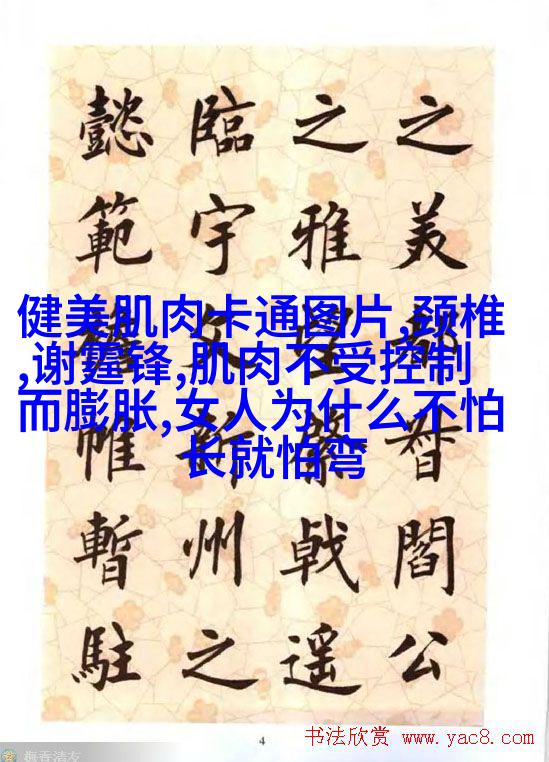 之美都督閻公
之雅戟遥
臨宇文新州之
懿範帷暫駐
健美肌肉卡通图片,颈椎
,谢霆锋,肌肉不受控制
而膨胀,女人为什么不怕
长就怕弯
4
书法欣赏 www.yac8.com